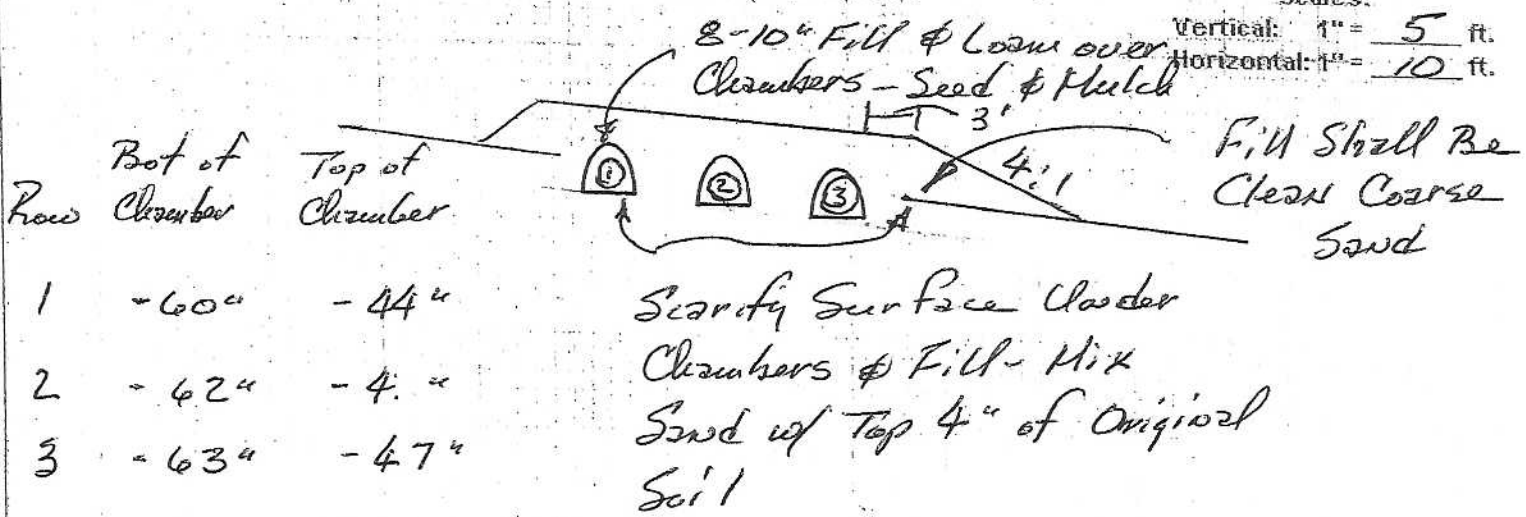 Scales:
Vertical: 1" = 5 ft.
Horizontal: 1" = 10 ft.
8-10" Fill & Loam over
Chambers - Seed & Mulch
3'
4:1
Fill Shall Be
Clean Coarse
Sand
① ② ③
A
Row Bot of Chamber Top of Chamber
1 -60" -44"
2 -62" -4. "
3 -63" -47"
Scarify Surface Under
Chambers & Fill - Mix
Sand w/ Top 4" of Original
Soil